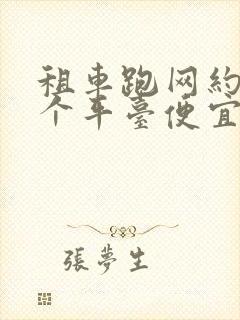 租車跑网約
个车臺便宜
張夢生